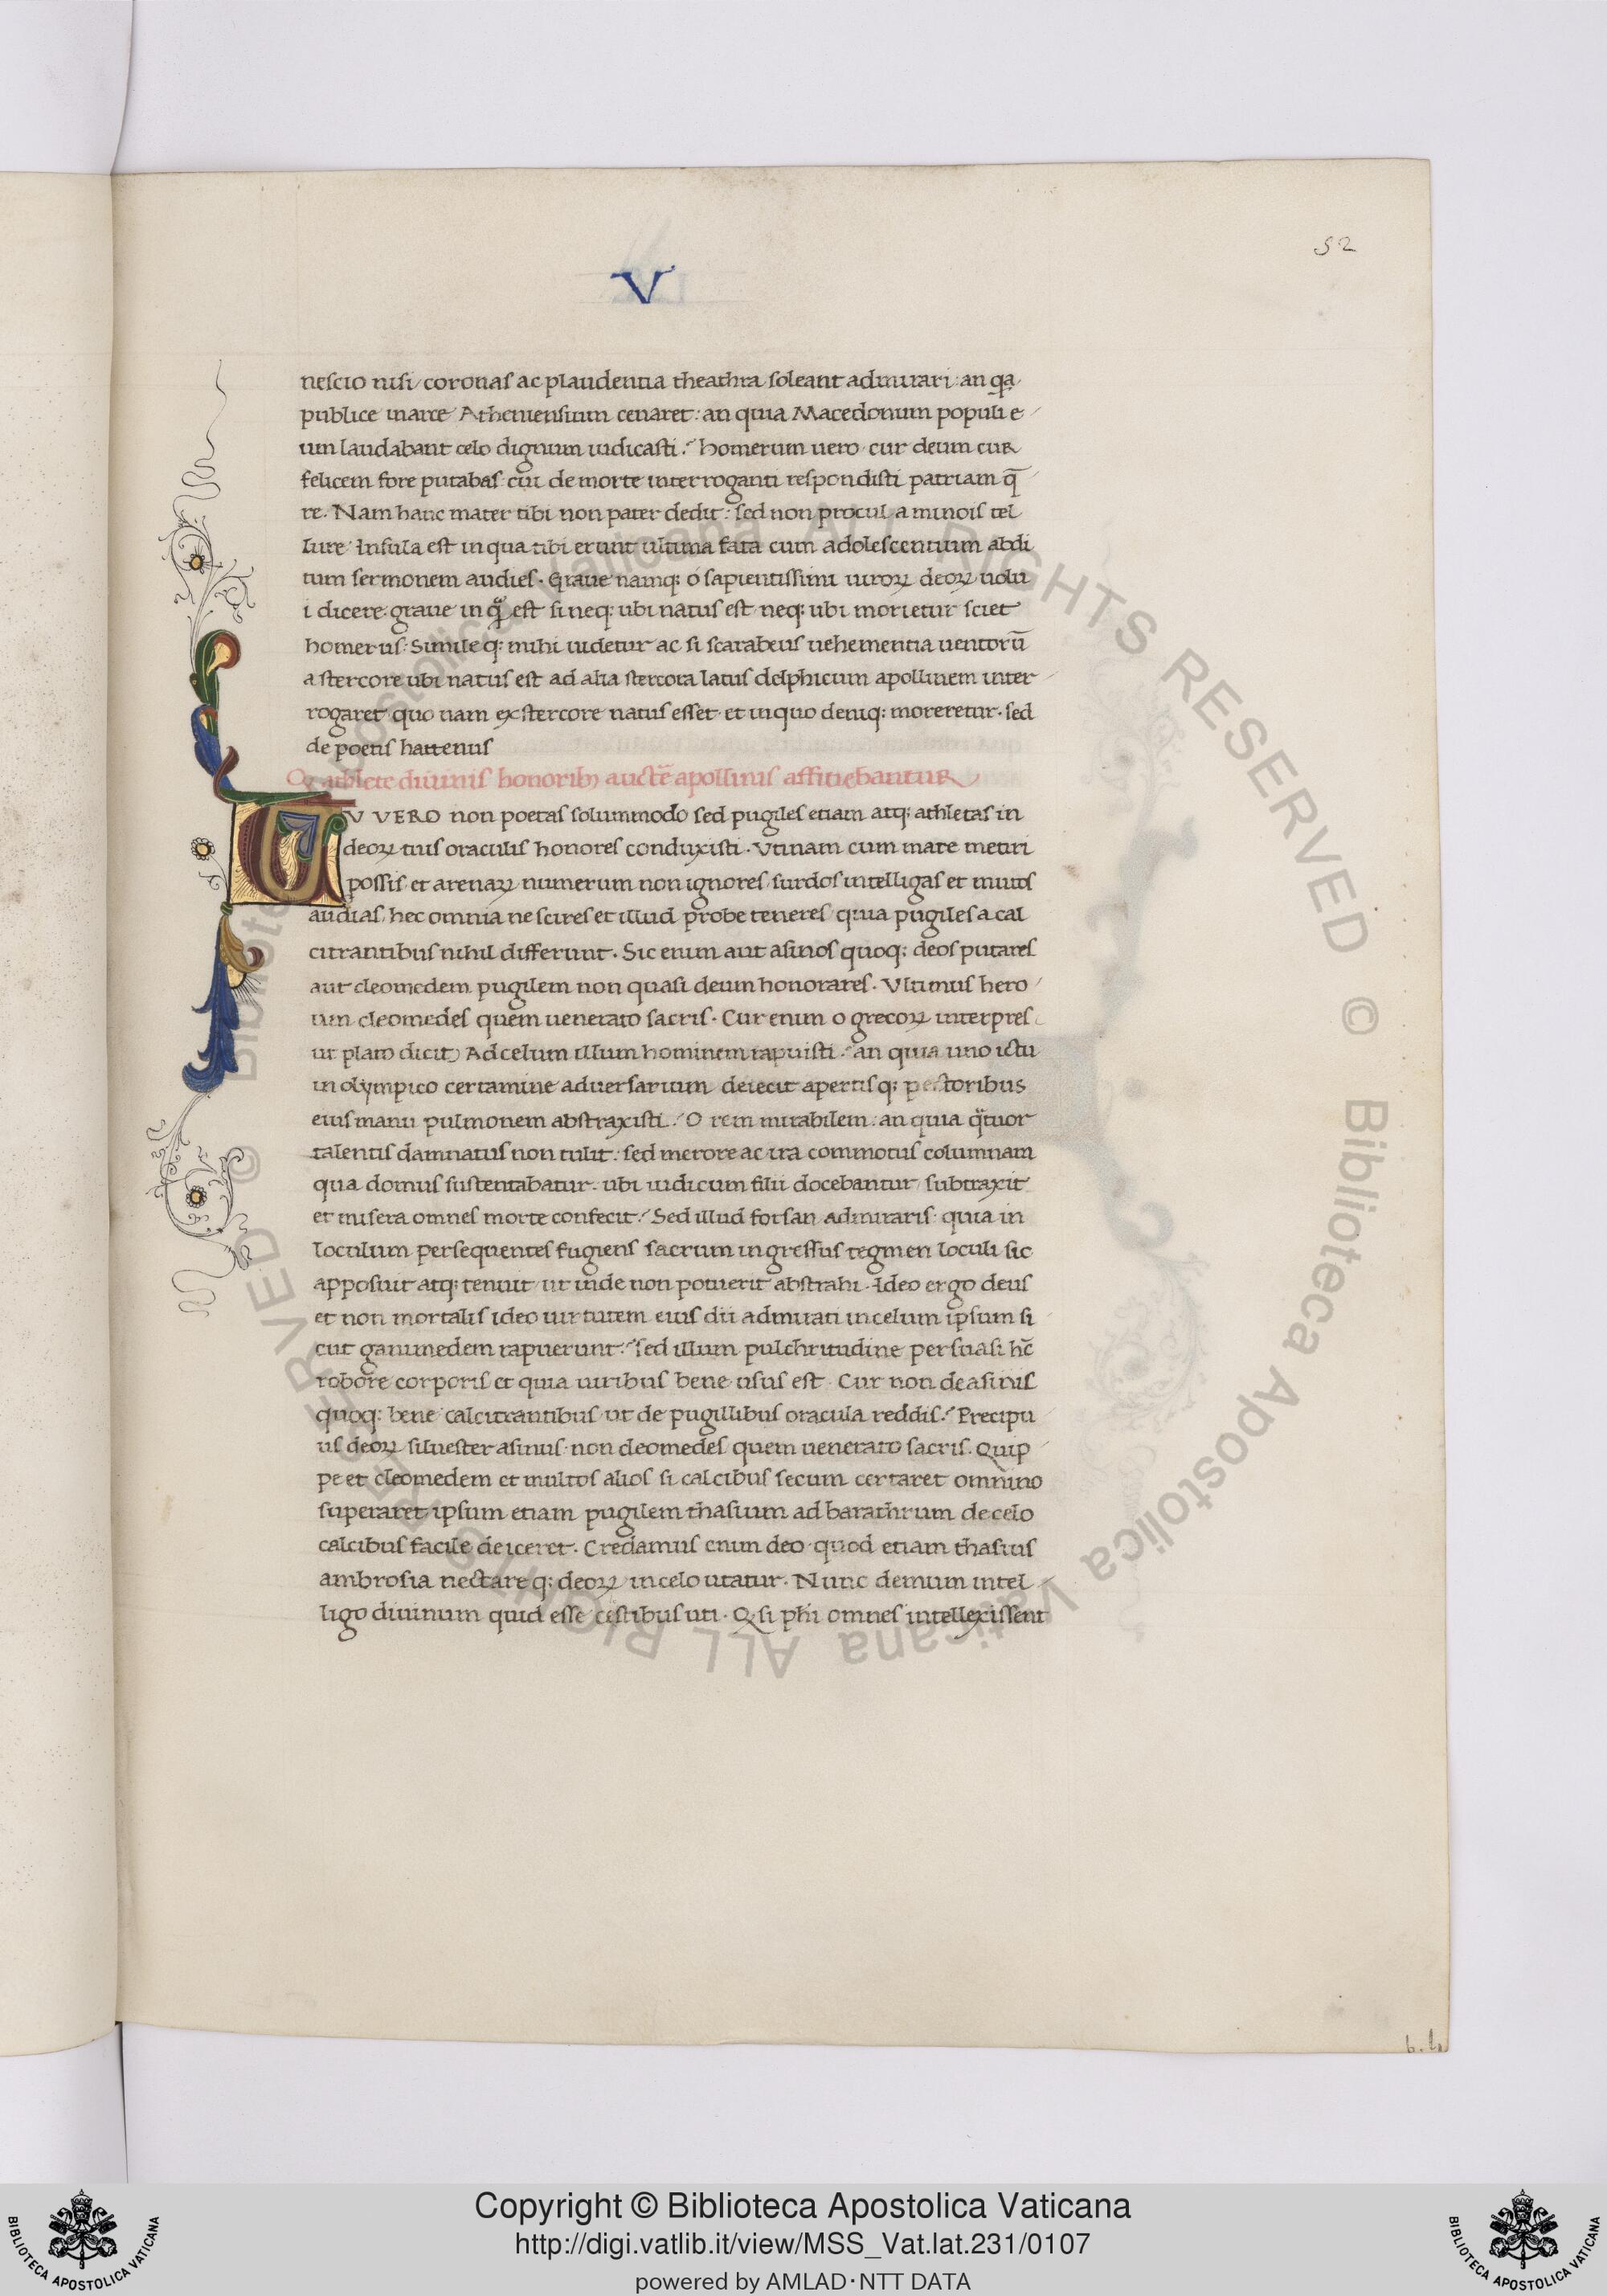 52
V
nescio nisi coronas ac plaudentia theathra soleant admirari: an qa
publice in arce Atheniensium cenaret: an quia Macedonum populi e
um laudabant celo dignum iudicasti? homerum uero cur deum cur
felicem fore putabas cui de morte interroganti respondisti patriam q̄
re. Nam hanc mater tibi non pater dedit: sed non procul a minois tel
lure Insula est in qua tibi erunt ultima fata cum adolescentium abdi
tum sermonem audies. Graue namq; o sapientissimi uiroꝝ deoꝝ uolu
i dicere graue inq̄ est si neq; ubi natus est neq; ubi morietur sciet
homerus: Simileq; mihi uidetur ac si scarabeus uehementia uentorū
a stercore ubi natus est ad alia stercora latus delphicum apollinem inter
rogaret quo nam ex stercore natus esset et in quo deniq; moreretur. sed
de poetis hattenus
Q athlete diuinis honorib; auctē apollinis afficiebantur
V VERO non poetas solummodo sed pugiles etiam atq; athletas in
deoꝝ tuis oraculis honores conduxisti. Vtinam cum mare metiri
possis et arenaꝝ numerum non ignores surdos intelligas et mutos
audias, hec omnia nescires et illud probe teneres quia pugiles a cal
citrantibus nihil differunt. Sic enim aut asinos quoq; deos putares
aut cleomedem pugilem non quasi deum honorares. Vltimus hero
um cleomedes quem uenerato sacris. Cur enim o grecoꝝ interpres
ut plato dicit) Ad celum illum hominem rapuisti? an quia uno ictu
in olympico certamine aduersarium deiecit apertisq; pectoribus
eius manu pulmonem abstraxisti? O rem mirabilem: an quia q̈tuor
talentis damnatus non tulit: sed merore ac ira commotus columnam
qua domus sustentabatur ubi iudicum filii docebantur subtraxit
et misera omnes morte confecit? Sed illud forsan admiraris: quia in
loculum persequentes fugiens sacrum ingressus tegmen loculi sic
apposuit atq; tenuit ut inde non potuerit abstrahi. Ideo ergo deus
et non mortalis ideo uirtutem eius dii admirati in celum ipsum si
cut ganimedem rapuerunt? sed illum pulchritudine persuasi hc̄
robore corporis et quia uiribus bene usus est. Cur non de asinis
quoq; bene calcitrantibus ut de pugillibus oracula reddis? Precipu
us deoꝝ siluester asinus non cleomedes quem uenerato sacris. Quip
pe et cleomedem et multos alios si calcibus secum certaret omnino
superaret ipsum etiam pugilem thasium ad barathrum de celo
calcibus facile deiceret. Credamus enim deo quod etiam thasius
ambrosia nectareq; deoꝝ in celo utatur. Nunc demum intel
ligo diuinum quid esse cestibus uti. Q si phi omnes intellexissent
© Biblioteca Apostolica Vaticana ALL RIGHTS RESERVED © Biblioteca Apostolica Vaticana ALL RIGHTS RESERVED
Copyright © Biblioteca Apostolica Vaticana
http://digi.vatlib.it/view/MSS_Vat.lat.231/0107
powered by AMLAD·NTT DATA
BIBLIOTECA APOSTOLICA VATICANA
BIBLIOTECA APOSTOLICA VATICANA